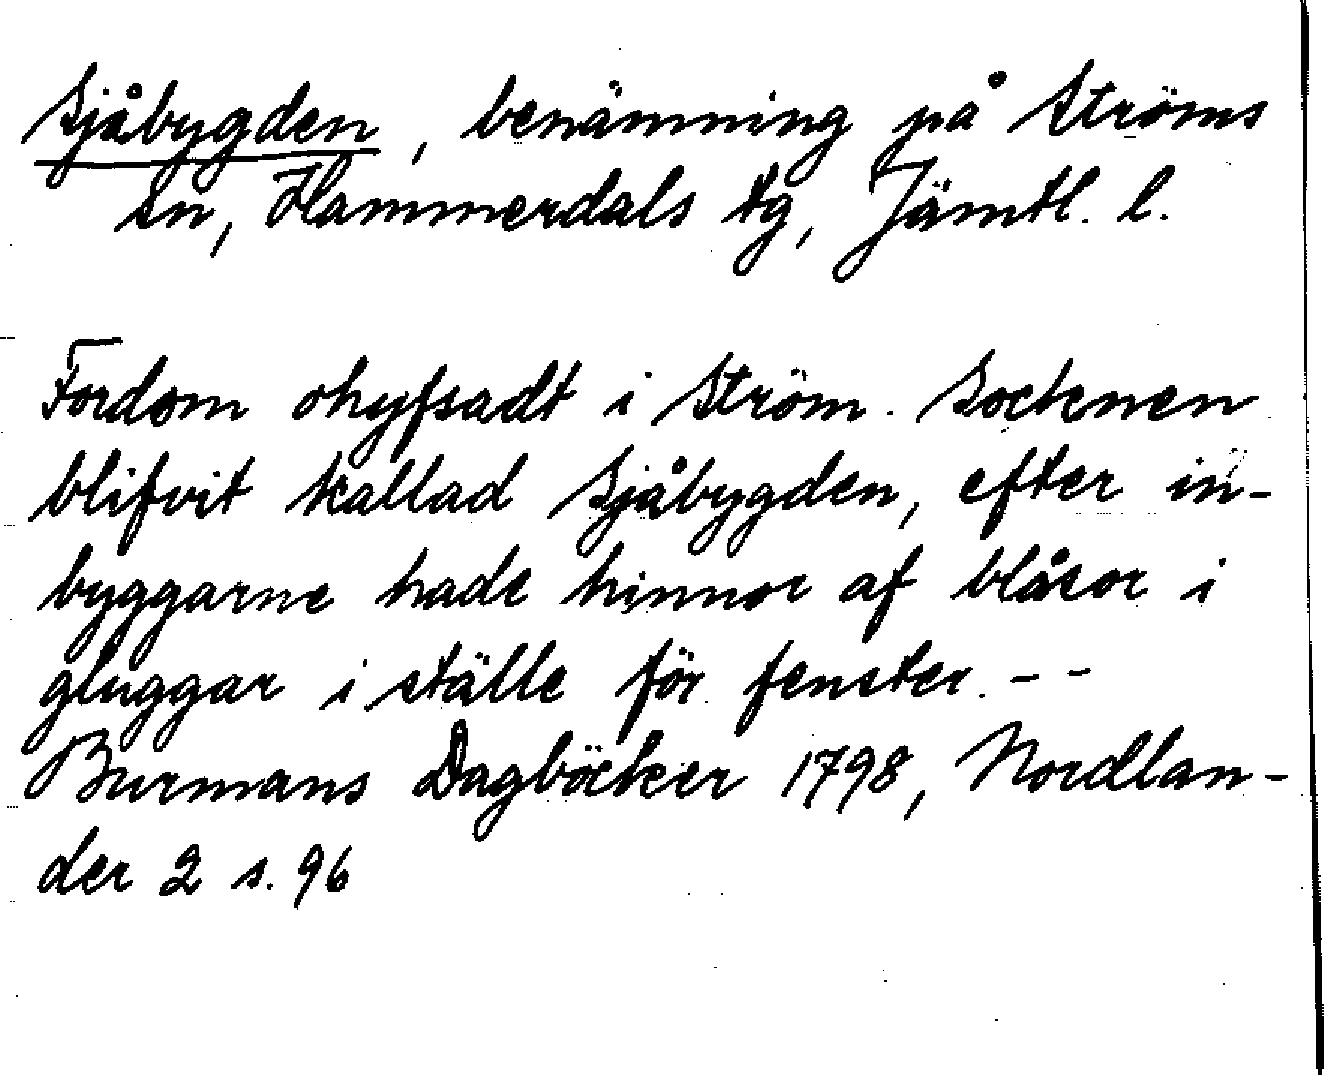 Sjåbygden, benämning på Ströms
sn, Hammerdals tg, Jämtl. l.
Fordom ohyfsadt i Ström. Socknen
blifvit kallad Sjåbygden, efter in-
byggarne hade hinnor af blåsor i
gluggar i ställe för fenster. - -
Burmans Dagböcker 1798, Nordlan-
der 2 s. 96